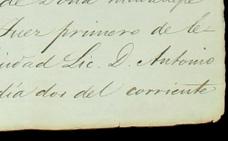 de Doña
Juez primero de le-
iudad Lic. D. Antonio
día dos del corriente